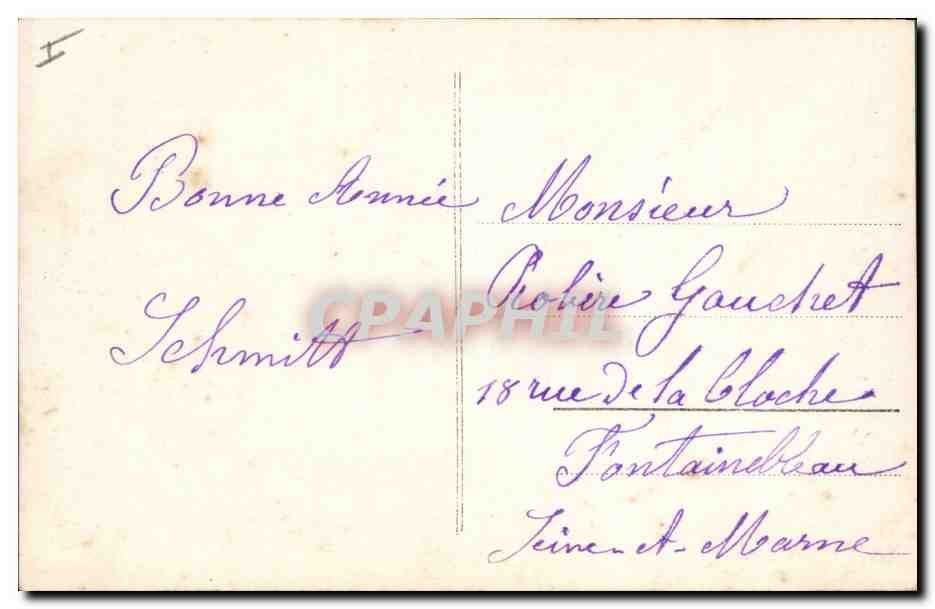 Bonne Année
Schmitt
Monsieur
Robere Gouchet
18 rue de la Cloche
Fontainebleau
Seine-et-Marne
CPAPHIL